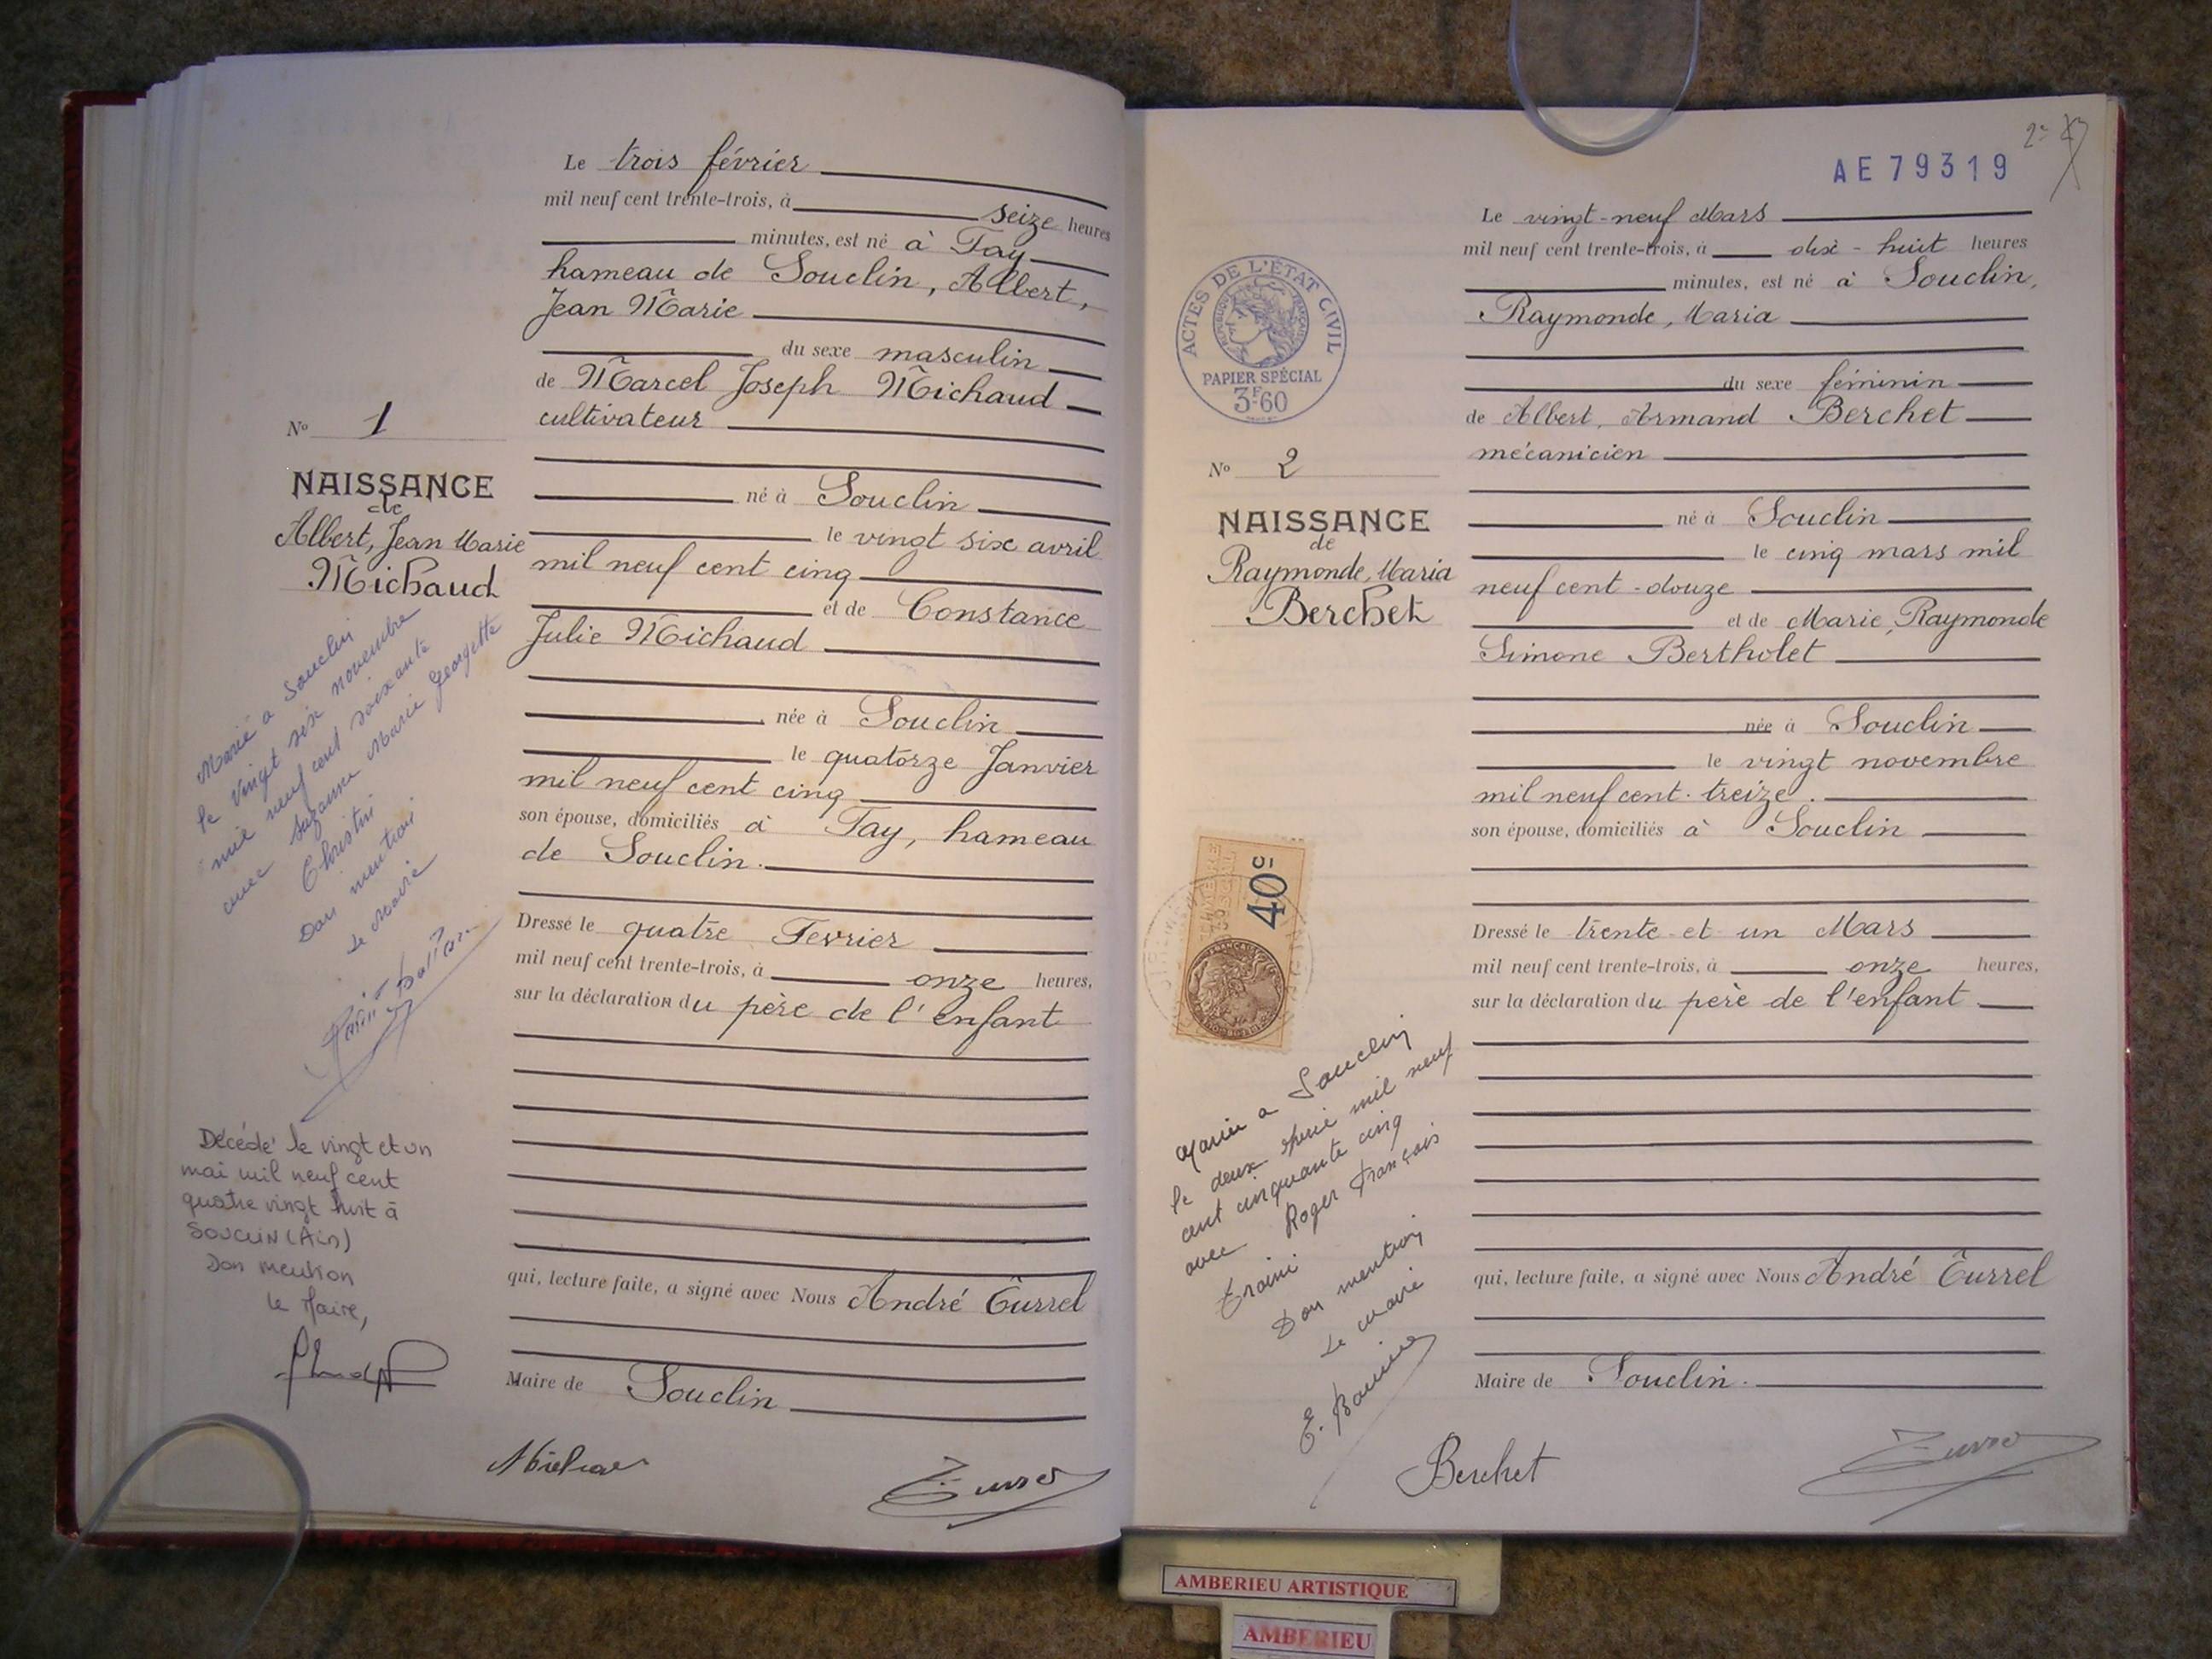 Le trois février
mil neuf cent trente-trois, à seize heures
minutes, est né à Fay
hameau de Souclin, Albert,
Jean Marie
du sexe masculin
de Marcel Joseph Michaud
cultivateur
né à Souclin
le vingt six avril
mil neuf cent cinq
et de Constance
Julie Michaud
née à Souclin
le quatorze Janvier
mil neuf cent cinq
son épouse, domiciliés à Fay, hameau
de Souclin.
Dressé le quatre Fevrier
mil neuf cent trente-trois, à onze heures,
sur la déclaration du père de l'enfant
qui, lecture faite, a signé avec Nous André Turrel
Maire de Souclin
No 1
NAISSANCE
de
Albert, Jean Marie
Michaud
Marié a Souclin
le vingt six novembre
mil neuf cent soixante
avec Suzanne Marie Georgette
Christin
Dont mention
Le Maire
Décédé le vingt et un
mai mil neuf cent
quatre vingt huit à
SOUCLIN (Ain)
Dont mention
Le Maire,
AE 79319
Le vingt-neuf Mars
mil neuf cent trente-trois, à dix-huit heures
minutes, est né à Souclin,
Raymonde, Maria
du sexe féminin
de Albert, Armand Berchet
mécanicien
né à Souclin
le cinq mars mil
neuf cent-douze
et de Marie, Raymonde
Simone Bertholet
née à Souclin
le vingt novembre
mil neuf cent treize.
son épouse, domiciliés à Souclin
Dressé le trente et un Mars
mil neuf cent trente-trois, à onze heures,
sur la déclaration du père de l'enfant
qui, lecture faite, a signé avec Nous André Turrel
Maire de Souclin.
Berchet
Turrel
ACTES DE L'ÉTAT CIVIL
PAPIER SPÉCIAL
3F60
No 2
NAISSANCE
de
Raymonde, Maria
Berchet
40c
Mariée a Souclin
le deux mil neuf
cent cinquante cinq
avec Roger François
Dont mention
Le Maire
AMBERIEU ARTISTIQUE
AMBERIEU